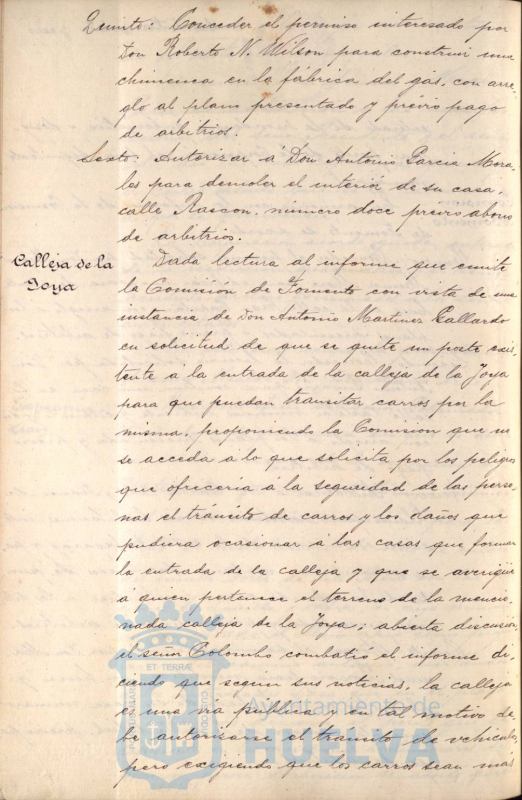 Quinto: Conceder el permiso interesado por
Don Roberto N. Wilson para construir una
chimenea en la fábrica del gas, con arre-
glo al plano presentado y prévio pago
de arbitrios.
Sexto: Autorizar á Don Antonio Garcia Mora-
les para demoler el interior de su casa,
calle Rascon, número doce prévio abono
de arbitrios.
Calleja de la
Joya
Dada lectura al informe que emite
la Comisión de Fomento con vista de una
instancia de Don Antonio Martinez Gallardo
en solicitud de que se quite un poste exis-
tente á la entrada de la calleja de la Joya
para que puedan transitar carros por la
misma, proponiendo la Comision que no
se acceda á lo que solicita por los peligros
que ofreceria á la seguridad de las perso-
nas el tránsito de carros y los daños que
pudiera ocasionar á las casas que forman
la entrada de la calleja y que se averigüe
á quien pertenece el terreno de la mencio-
nada calleja de la Joya; abierta discusion
el señor Colombo combatió el informe di-
ciendo que segun sus noticias, la calleja
es una via pública y en tal motivo de-
be autorizarse el transito de vehiculos,
pero exigiendo que los carros sean mas
ET TERRÆ
Ayuntamiento de
HUELVA